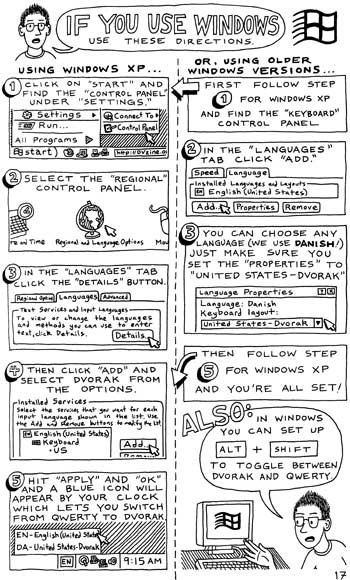 IF YOU USE WINDOWS
USE THESE DIRECTIONS.
USING WINDOWS XP...
1 CLICK ON "START" AND
FIND THE "CONTROL PANEL"
UNDER "SETTINGS."
Settings
Run...
All Programs
start)
Connect To
Control Panel
http://DVzine.org
2 SELECT THE "REGIONAL"
CONTROL PANEL.
te and Time
Regional and Language Options
Mou
3 IN THE "LANGUAGES" TAB
CLICK THE "DETAILS" BUTTON.
Regional Options Languages Advanced
Text Services and Input Languages
To view or change the languages
and methods you can use to enter
text, click Details.
Details...
4 THEN CLICK "ADD" AND
SELECT DVORAK FROM
THE OPTIONS.
Installed Services
Select the services that you want for each
input language shown in the list. Use
the Add and Remove buttons to modify the list.
EN English (United States)
Keyboard
• US
Add...
Remove
5 HIT "APPLY" AND "OK"
AND A BLUE ICON WILL
APPEAR BY YOUR CLOCK
WHICH LETS YOU SWITCH
FROM QWERTY TO DVORAK.
EN-English (United States)
DA-United States-Dvorak
EN
9:15 AM
OR, USING OLDER
WINDOWS VERSIONS...
FIRST FOLLOW STEP
1 FOR WINDOWS XP
AND FIND THE "KEYBOARD"
CONTROL PANEL
2 IN THE "LANGUAGES"
TAB CLICK "ADD."
Speed Language
Installed Languages and Layouts
EN English (United States)
Add... Properties Remove
3 YOU CAN CHOOSE ANY
LANGUAGE (WE USE DANISH!)
JUST MAKE SURE YOU
SET THE "PROPERTIES" TO
"UNITED STATES-DVORAK"
Language Properties ? X
Language: Danish
Keyboard layout:
United States-Dvorak
THEN FOLLOW STEP
5 FOR WINDOWS XP
AND YOU'RE ALL SET!
ALSO: IN WINDOWS
YOU CAN SET UP
ALT + SHIFT
TO TOGGLE BETWEEN
DVORAK AND QWERTY.
17